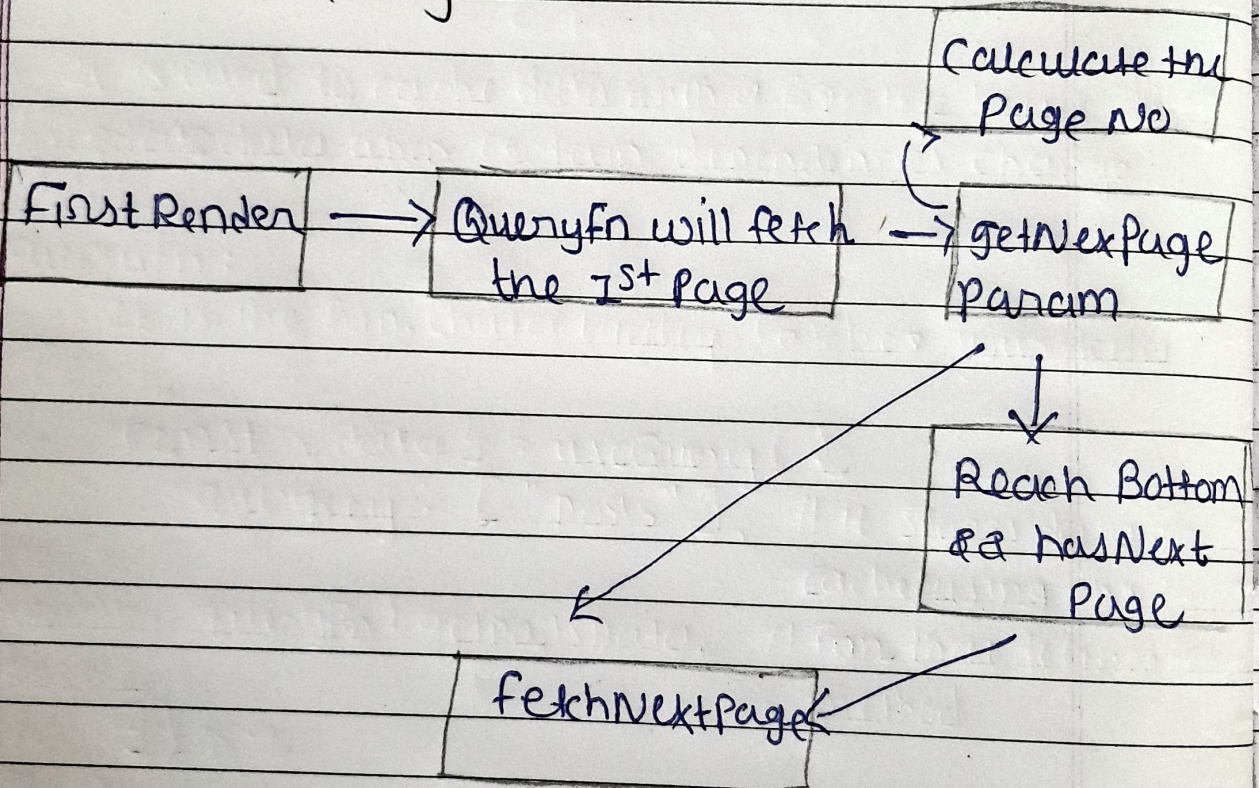 Calculate the
Page No
First Render
Queryfn will fetch
the 1st Page
getNexPage
Param
Reach Bottom
&& hasNext
Page
fetchNextPage